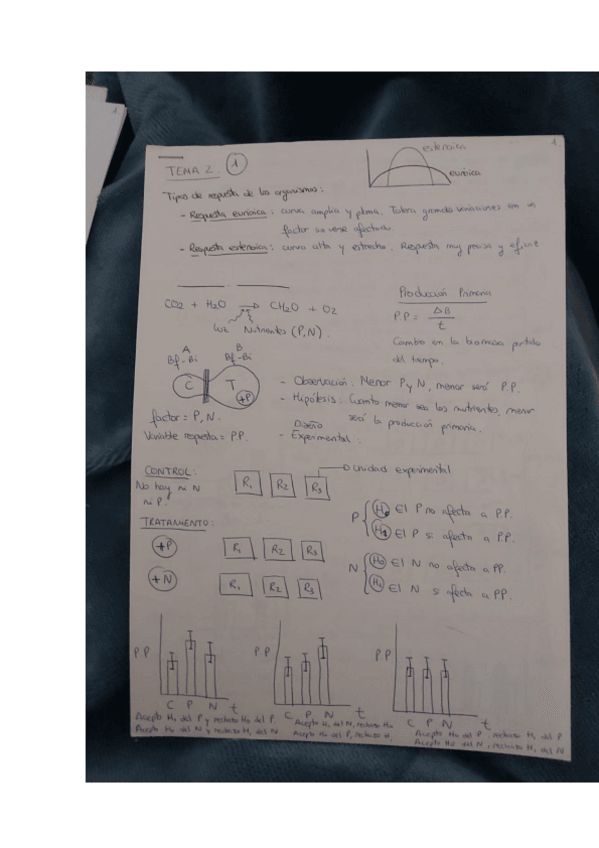 1
TEMA 2. 1
estenoica
eurioica
Tipos de respuesta de los organismos:
- Respuesta eurioica: curva amplia y plana. Tolera grandes variaciones en un
factor sin verse afectado.
- Respuesta estenoica: curva alta y estrecha. Respuesta muy precisa y
CO2 + H2O → CH2O + O2
Luz Nutrientes (P, N).
Producción Primaria
P.P = ΔB / t
Cambio en la biomasa partido
del tiempo.
A B
Bf-Bi Bf-Bi
C T +P
- Observación: Menor P y N, menor será P.P.
- Hipótesis: Cuanto menor sea los nutrientes, menor
será la producción primaria.
factor = P, N.
Variable respuesta = P.P.
Diseño
- Experimental:
CONTROL:
No hay ni N
ni P.
R1 R2 R3
unidad experimental
TRATAMIENTO:
+P R1 R2 R3
+N R1 R2 R3
P { H0 El P no afecta a P.P.
H1 El P si afecta a P.P.
N { H0 El N no afecta a PP.
H1 El N si afecta a P.P.
P.P C P N t
P.P C P N t
P.P C P N t
Acepto H1 del P y rechazo H0 del P.
Acepto H0 del N y rechazo H1 del N
Acepto H1 del N, rechazo H0
Acepto H0 del P, rechazo
Acepto H0 del P, rechazo H1 del P
Acepto H0 del N, rechazo H1 del N